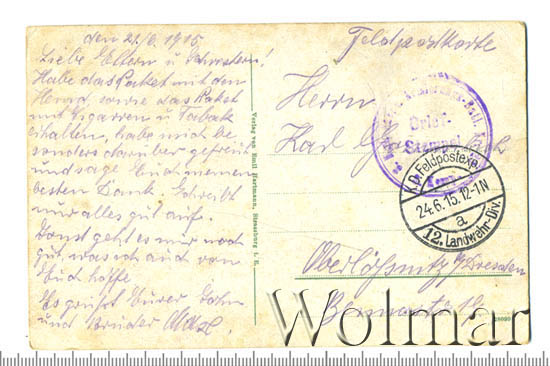 den 21/6. 1915.
Liebe Eltern u Schwestern!
Habe das Paket mit den
Hemd, sowie das Paket
mit Zigarren u Tabak
erhalten, habe mich be
sonders darüber gefreut
und sage Euch meinen
besten Dank
nur alles gut auf.
Sonst geht es mir noch
gut, was ich auch von
Euch hoffe
Es grüßt Eurer Sohn
und Bruder
Verlag von Emil Hartmann, Strassburg i. E.
Feldpostkarte
Herrn
Karl
Brief-
Stempel
K.D. Feldpostexp.
24.6.15.12-1N
a
12. Landwehr-Div.
Oberlößnitz b/Dresden
Wolmar